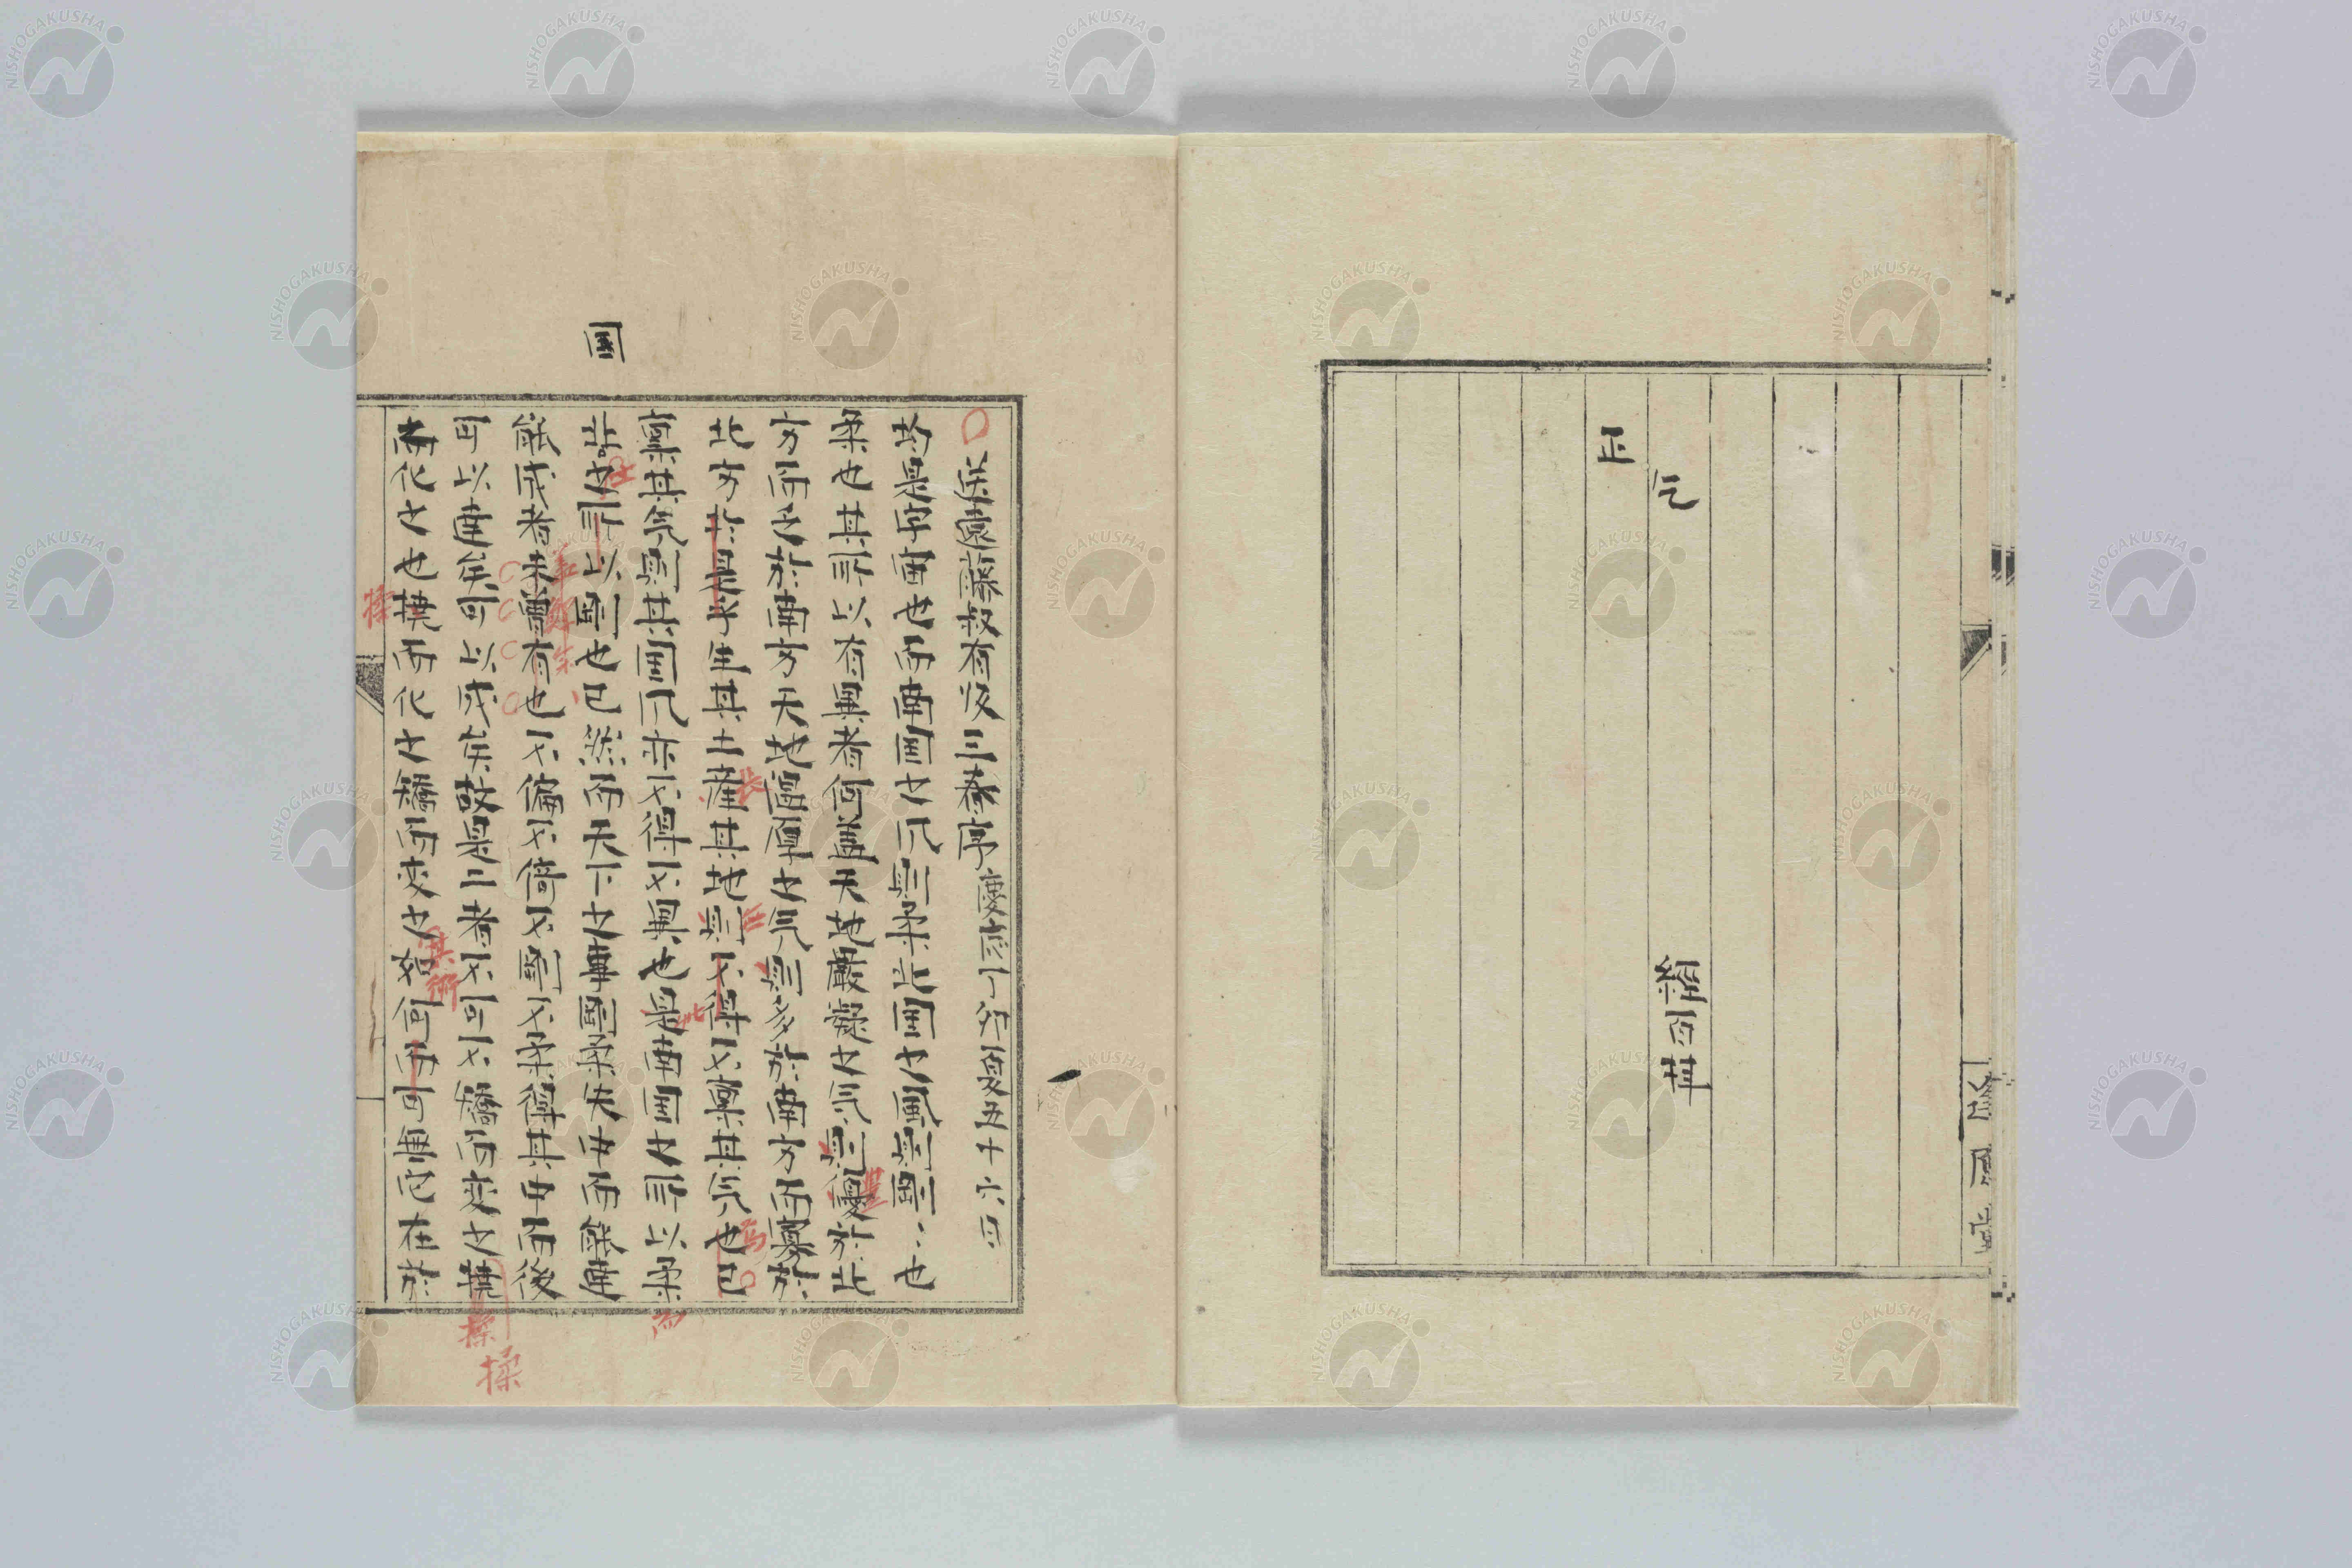 正
气
經百拜
送遠藤叔有及三喬序 慶應丁卯夏五十六日
均是宇宙也而南国之风則柔北国之風則剛〻也
柔也其所以有異者何蓋天地嚴凝之气則優於北
方而劣於南方天地温厚之气則多於南方而寡於
北方於是乎生其土產其地則不得不稟其气也已
稟其气則其国风亦不得不異也是南国之所以柔
北之所以剛也已然而天下之事剛柔失中而能事
能成者未嘗有也不偏不倚不剛不柔得其中而後
可以事矣可以成矣故是二者不可不矯而変之揉
而化之也揉而化之矯而変之如何而可無它在於
国
在
長
豊
而
其術
揉
揉
揉
NISHOGAKUSHA